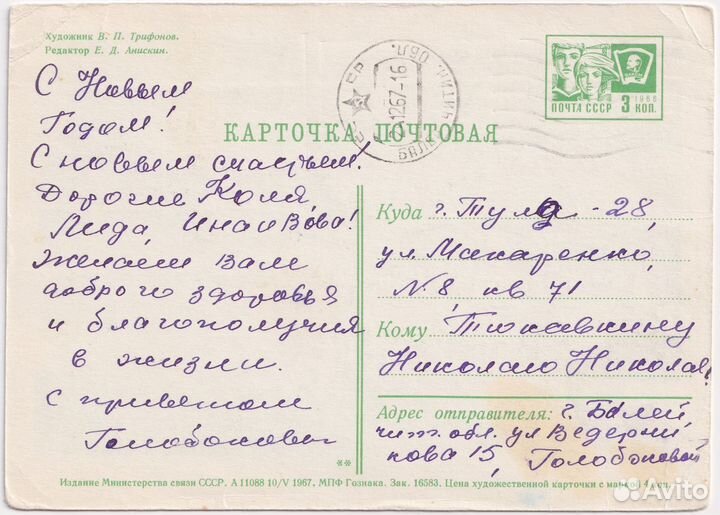 Художник В. П. Трифонов.
Редактор Е. Д. Анискин.
С Новым
Годом!
С новым счастьем!
Дорогие Коля,
Лида, Инна и Вова!
Желаем Вам
доброго здоровья
и благополучия
в жизни.
С приветом
Голобокови
**
1966
ПОЧТА СССР 3 КОП.
12 67-16
ЧИТИН. ОБЛ.
КАРТОЧКА ПОЧТОВАЯ
Куда г. Тула - 28,
ул. Макаренко,
N 8, кв 71
Кому Токавкину
Николаю Николая
Адрес отправителя: г. Балей,
чит. обл. ул Ведерни
кова 15, Голобоковой
Издание Министерства связи СССР. А 11088 10/V 1967. МПФ Гознака. Зак. 16583. Цена художественной карточки с маркой 4 коп.
Avito